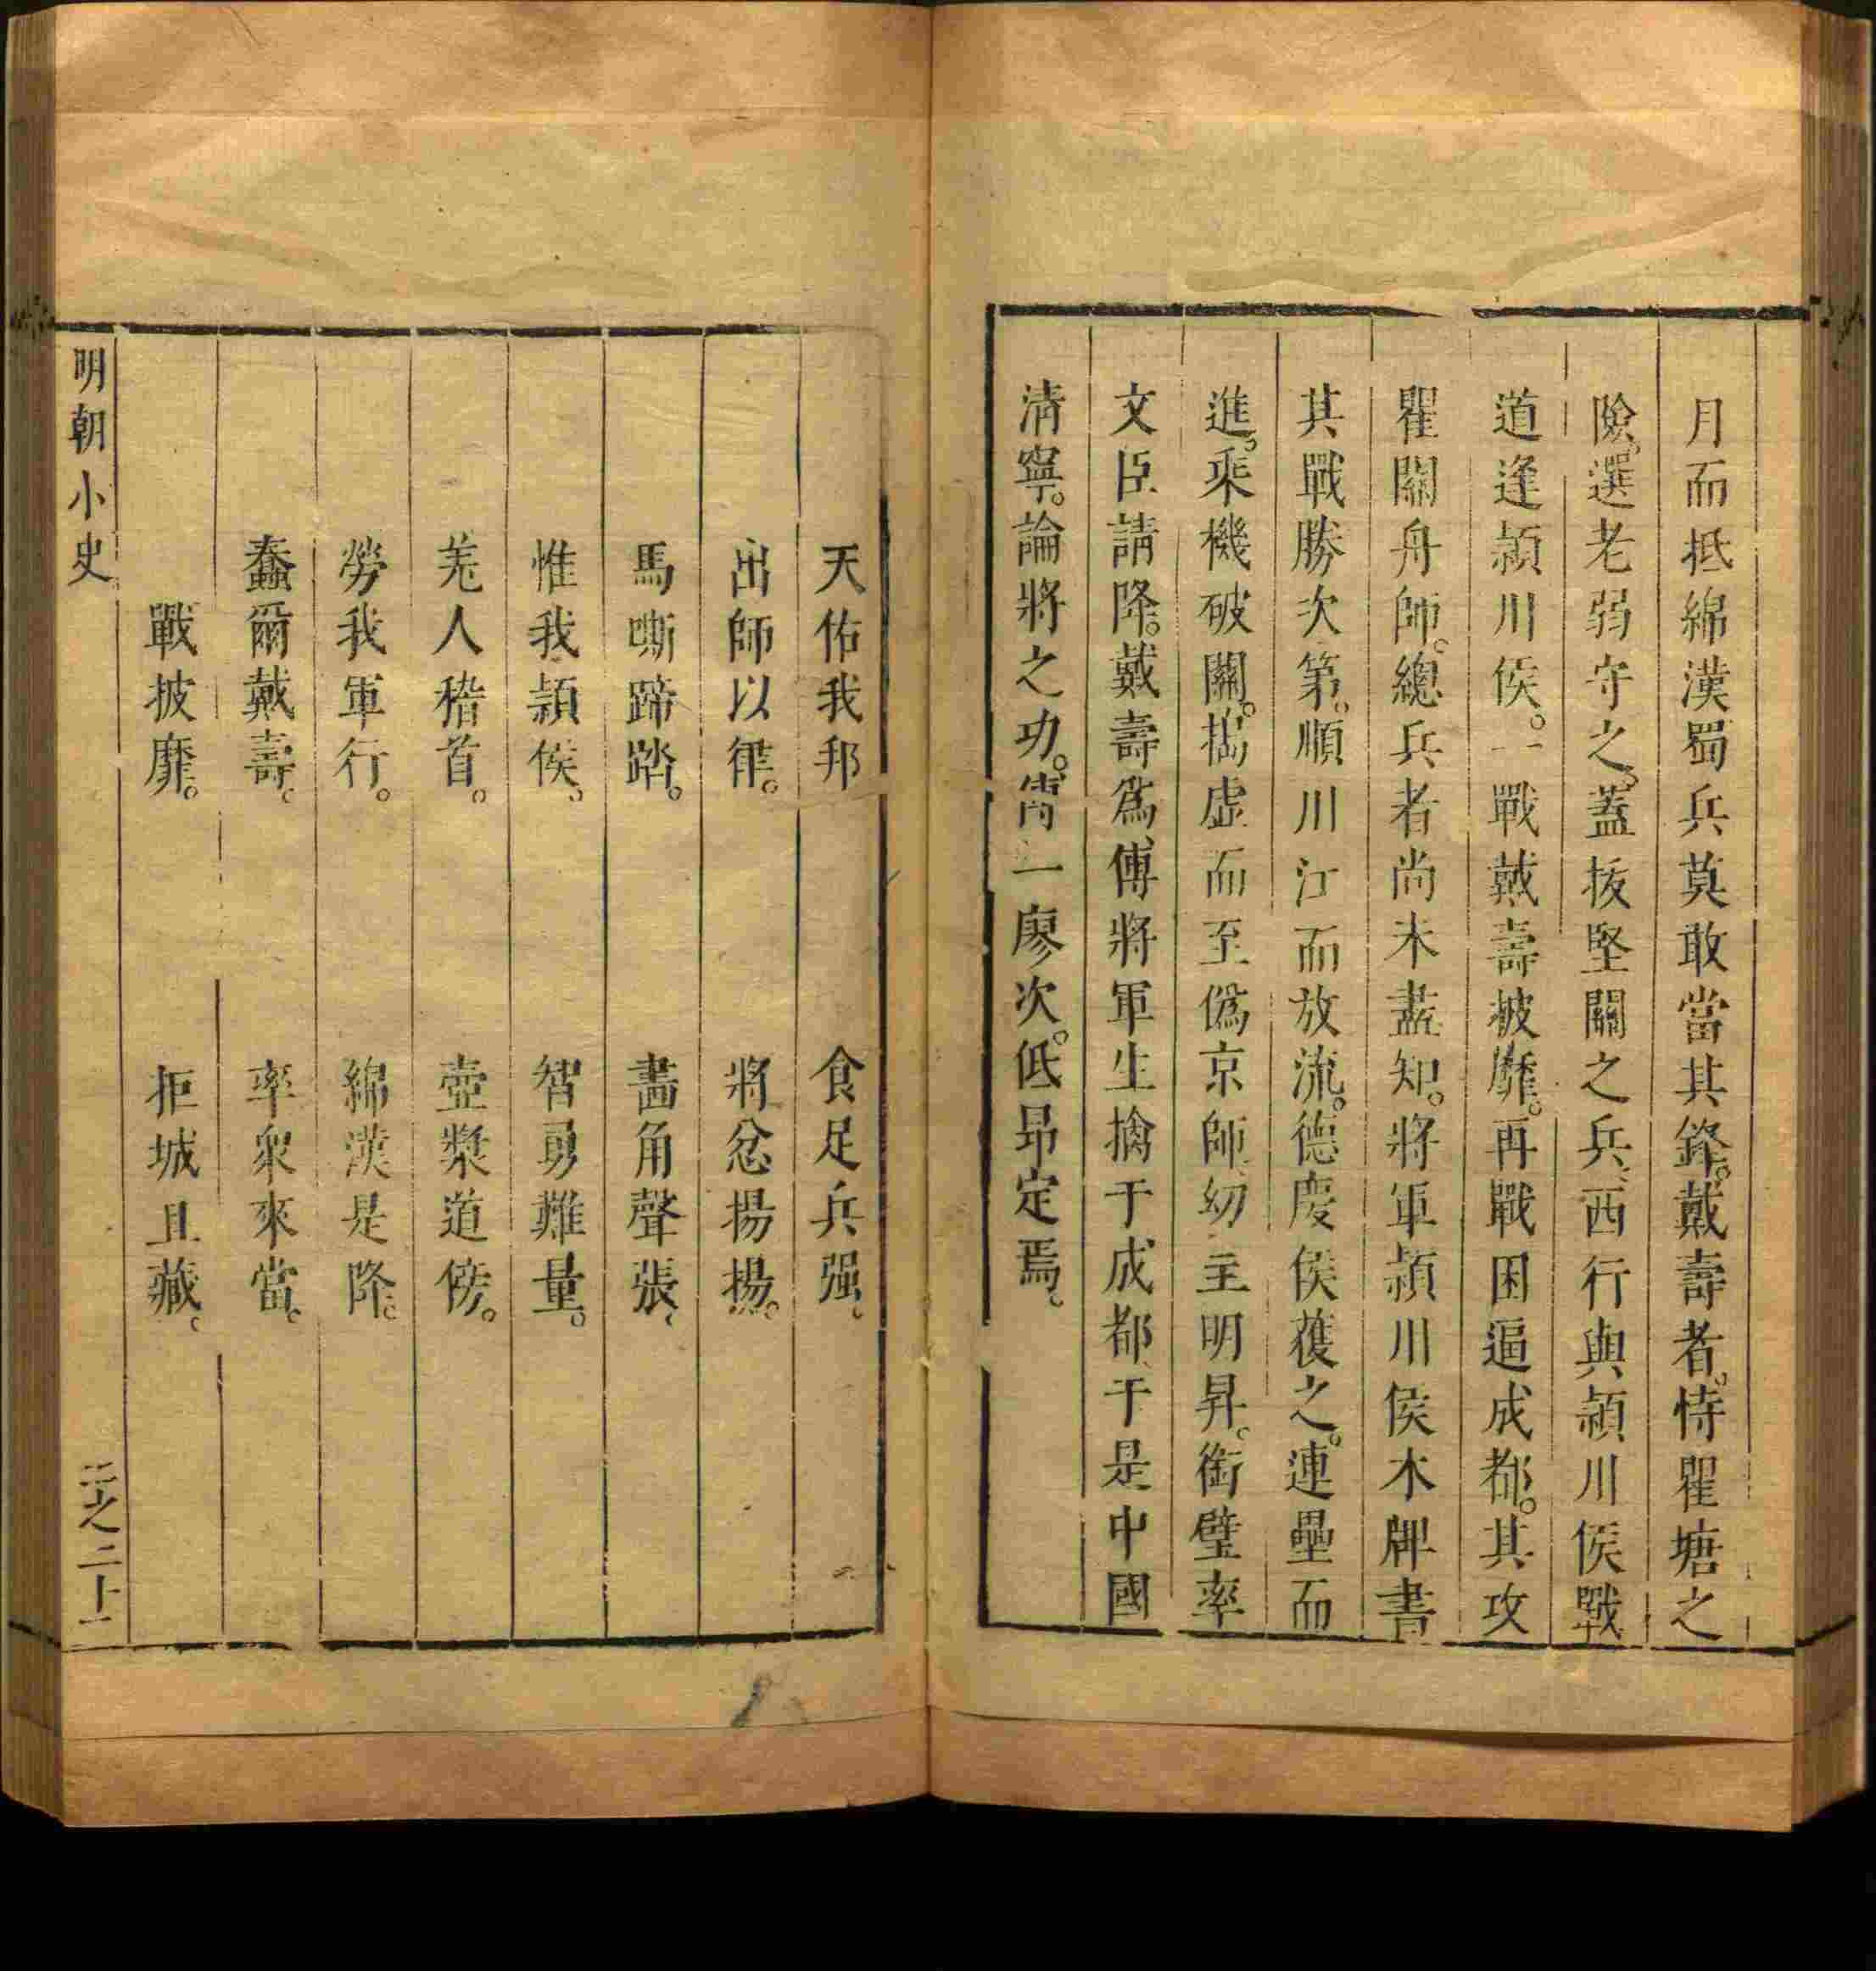 月而抵綿漢蜀兵莫敢當其鋒。戴壽者。恃瞿塘之
險。選老弱守之。蓋抜堅關之兵、西行與潁川侯戰
道逢潁川侯。一戰戴壽披靡。再戰困逼成都。其攻
瞿關舟師。總兵者尚未盡知。將軍潁川侯木牌書
其戰勝次第。順川江而放流。德慶侯获之。連壘而
進。乘機破關。搗虛而至偽京師、幼主明昇。銜璧率
文臣請降。戴壽爲傅將軍生擒于成都、于是中國
清寧。論將之功。傅一廖次。低昂定焉。
天佑我邦　食足兵强。
出師以律。　將忿揚揚。
馬嘶蹄踏。　畵角聲張、
惟我潁侯。　智勇難量。
羌人稽首。　壺漿道傍。
勞我軍行。　綿漢是降。
蠢爾戴壽。　率衆來當。
戰披靡。　拒城且藏。
明朝小史　之二十一